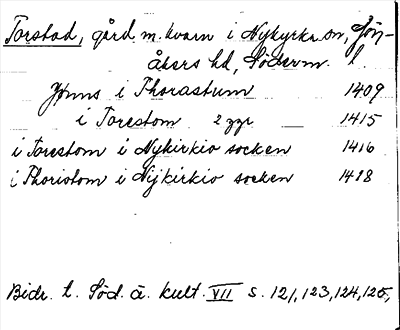 Torstad, gård m. kvarn i Nykyrka sn, Jön-
åkers hd, Söderm. l.
Jönns i Thorastum 1409
i Torestom 2 ggr 1415
i Torestom i Nykirkio socken 1416
i Thoriotom i Nijkirkio socken 1418
Bidr. t. Söd. ä. kult. VII s. 121, 123, 124, 125,